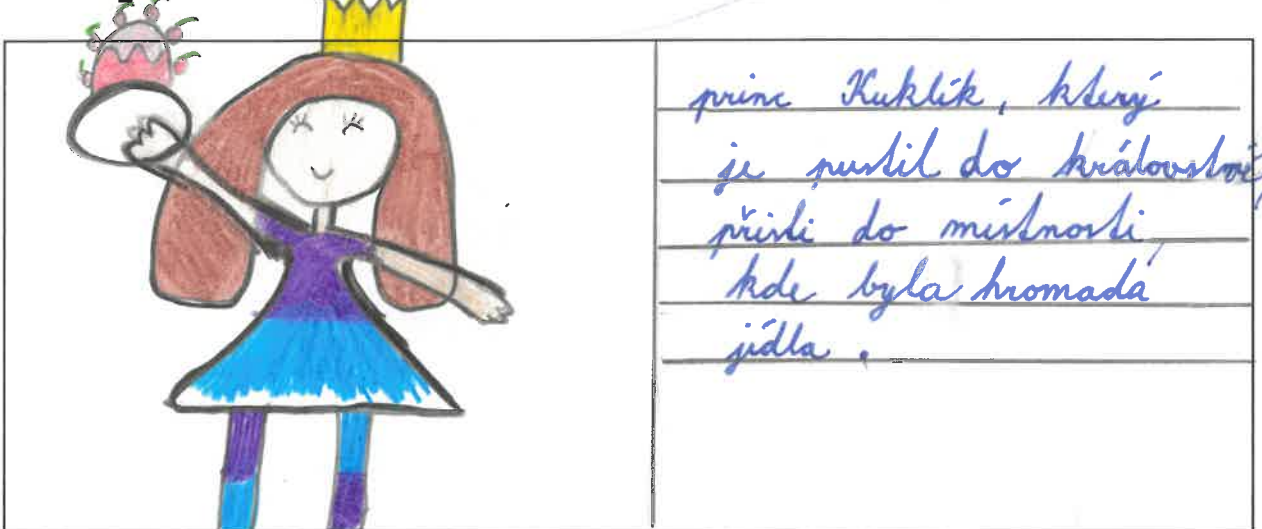 princ Kuklík, který
je pustil do království,
přišli do místnosti,
kde byla hromada
jídla.